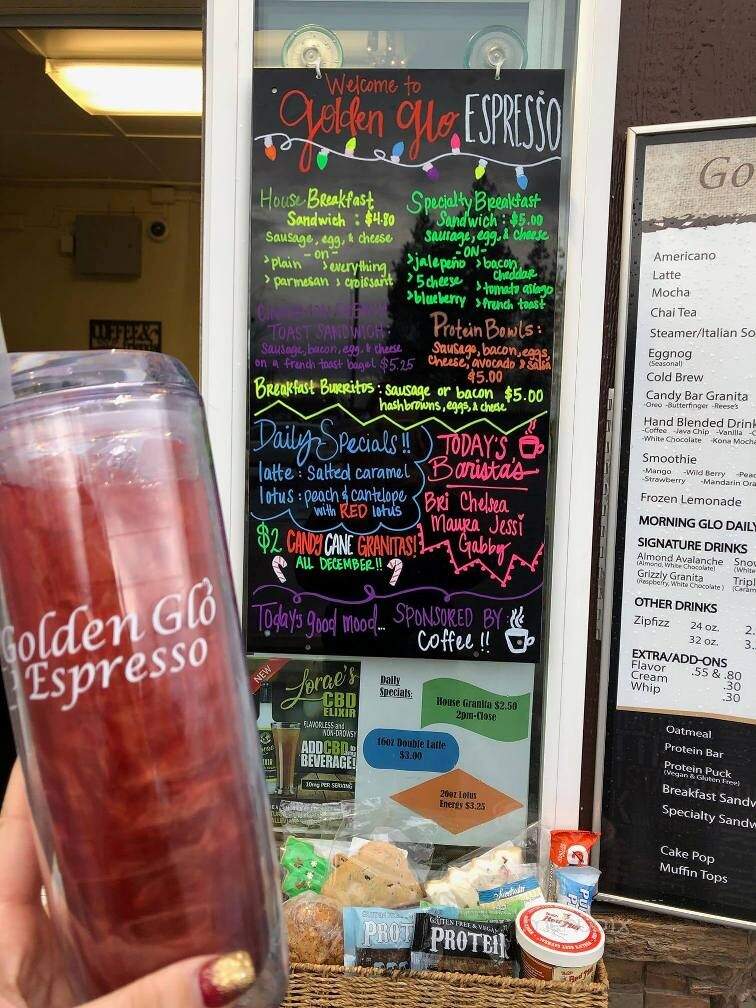 Welcome to
Golden Glo ESPRESSO
House Breakfast
Sandwich : $4.80
Sausage, egg, & cheese
-on-
>plain >everything
>parmesan >croissant
Specialty Breakfast
Sandwich : $5.00
sausage, egg, & cheese
-ON-
>jalepeño >bacon
cheddar
>5 cheese >tomato asiago
>blueberry >french toast
TOAST SANDWICH:
Sausage, bacon, egg, & cheese
on a french toast bagel $5.25
Protein Bowls:
Sausage, bacon, eggs,
cheese, avocado & salsa
$5.00
Breakfast Burritos: sausage or bacon $5.00
hashbrowns, eggs, & cheese
Daily Specials!!
latte : Salted caramel
lotus : peach & cantelope
with RED lotus
TODAY'S
Barista's
Bri Chelsea
Maura Jessi
Gabby
$2 CANDY CANE GRANITAS!
ALL DECEMBER!!
Today's good mood... SPONSORED BY:
Coffee!!
Golden Glo
Espresso
NEW
Lorae's
CBD
ELIXIR
FLAVORLESS and
NON-DROWSY
ADD CBD to
BEVERAGE!
10mg PER SERVING
Daily
Specials:
House Granita $2.50
2pm-Close
16oz Double Latte
$3.00
20oz Lotus
Energy $3.25
GLUTEN FREE & VEGAN
PROTEIN
Go
Americano
Latte
Mocha
Chai Tea
Steamer/Italian So
Eggnog
(Seasonal)
Cold Brew
Candy Bar Granita
-Oreo -Butterfinger -Reese's
Hand Blended Drink
-Coffee -Java Chip -Vanilla -C
-White Chocolate -Kona Mocha
Smoothie
-Mango -Wild Berry -Peac
-Strawberry -Mandarin Ora
Frozen Lemonade
MORNING GLO DAILY
SIGNATURE DRINKS
Almond Avalanche Snow
(Almond, White Chocolate) (White
Grizzly Granita Tripl
(Raspberry, White Chocolate) (Caram
OTHER DRINKS
Zipfizz 24 oz. 2.
32 oz. 3.
EXTRA/ADD-ONS
Flavor .55 & .80
Cream .30
Whip .30
Oatmeal
Protein Bar
Protein Puck
(Vegan & Gluten Free)
Breakfast Sandw
Specialty Sandw
Cake Pop
Muffin Tops